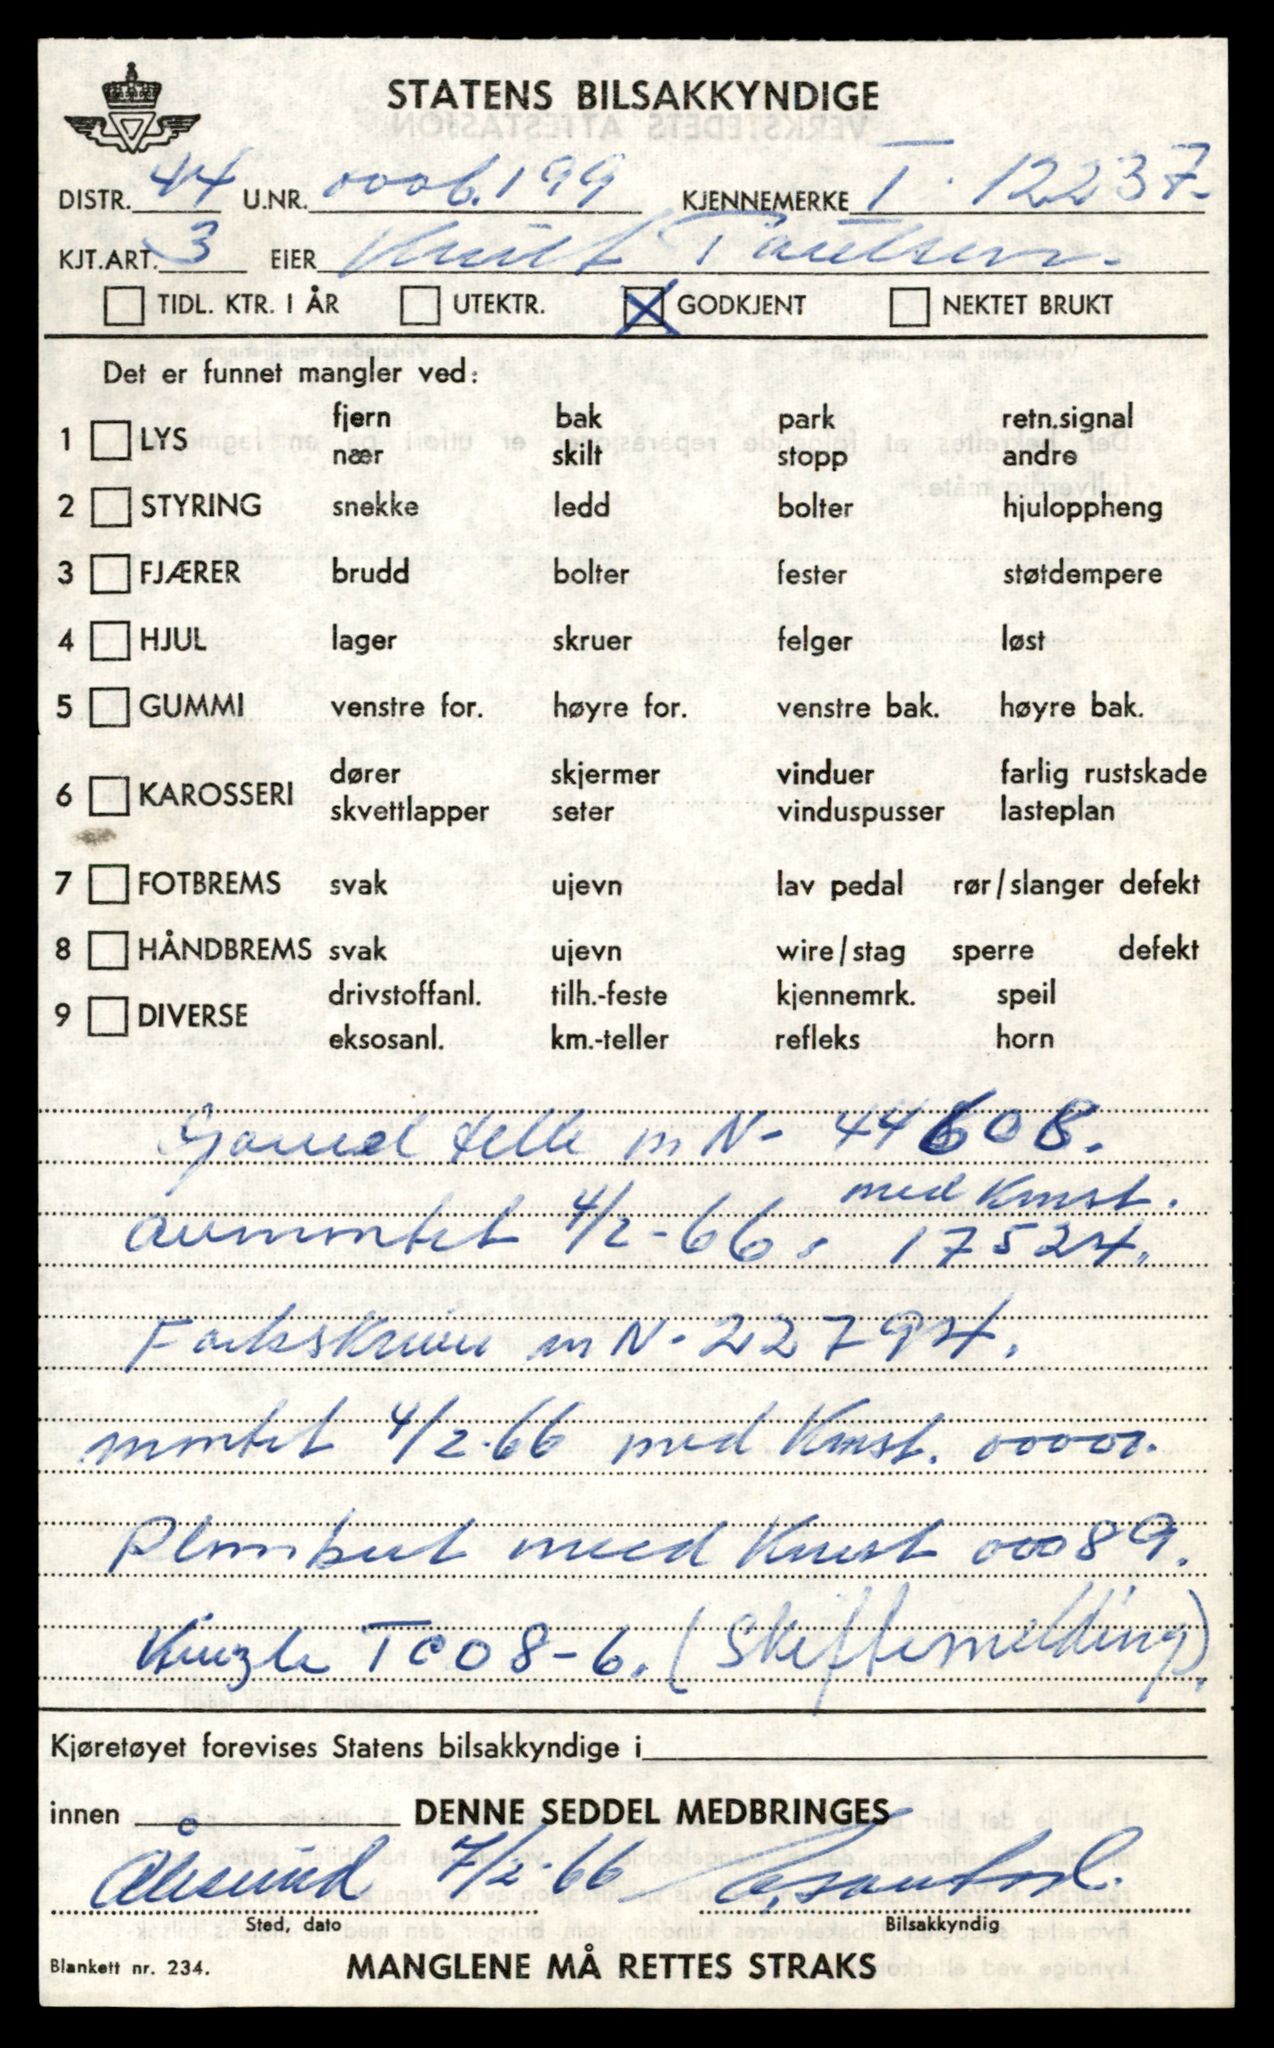 STATENS BILSAKKYNDIGE
DISTR. 44 U.NR. 0006.199 KJENNEMERKE T - 12237-
KJT.ART. 3 EIER Knut Paulsen.
TIDL. KTR. I ÅR UTEKTR. GODKJENT NEKTET BRUKT
Det er funnet mangler ved:
1 LYS fjern bak park retn.signal
nær skilt stopp andre
2 STYRING snekke ledd bolter hjuloppheng
3 FJÆRER brudd bolter fester støtdempere
4 HJUL lager skruer felger løst
5 GUMMI venstre for. høyre for. venstre bak. høyre bak.
6 KAROSSERI dører skjermer vinduer farlig rustskade
skvettlapper seter vinduspusser lasteplan
7 FOTBREMS svak ujevn lav pedal rør/slanger defekt
8 HÅNDBREMS svak ujevn wire/stag sperre defekt
9 DIVERSE drivstoffanl. tilh.-feste kjennemrk. speil
eksosanl. km.-teller refleks horn
telle m N- 44608.
med Kmst.
avmontet 4/2-66. 17524.
m N- 22794.
montet 4/2-66 med Kmst. 00000.
Plombert med Kmst 00089.
Kinzle TCO8-6. (Skiftemelding).
Kjøretøyet forevises Statens bilsakkyndige i
innen DENNE SEDDEL MEDBRINGES
Ålesund 7/2-66
Sted, dato Bilsakkyndig
Blankett nr. 234. MANGLENE MÅ RETTES STRAKS